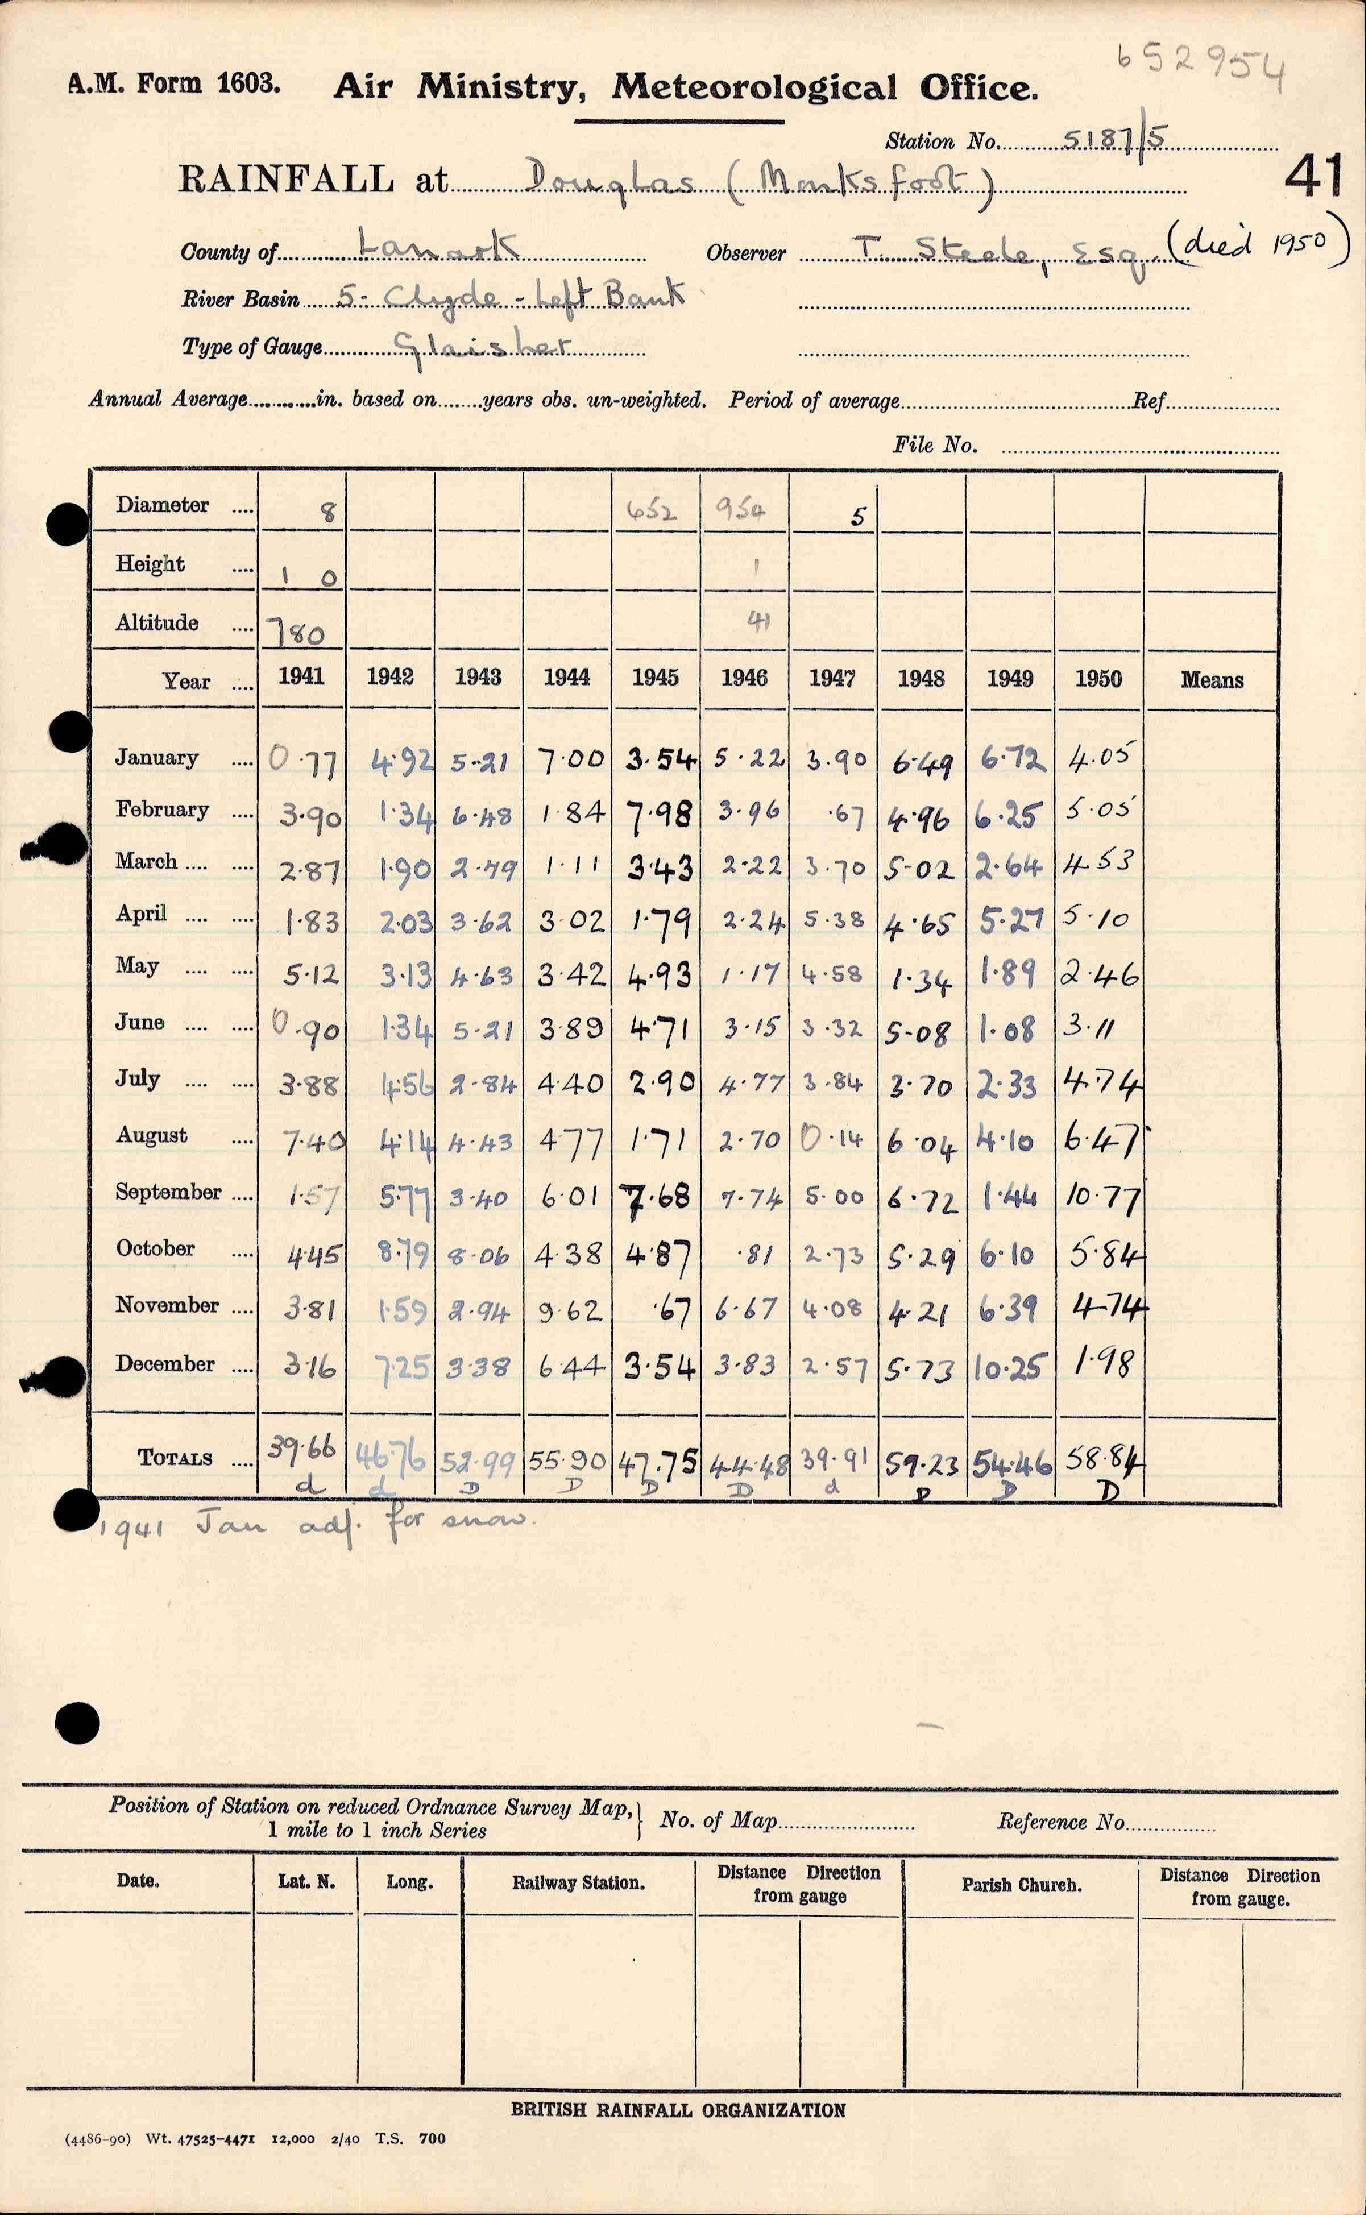 652954
A.M. Form 1603. Air Ministry, Meteorological Office.
Station No. 5187/5
RAINFALL at Douglas (Monksfoot) 41
County of Lanark Observer T. Steele, Esq. (died 1950)
River Basin 5 - Clyde - Left Bank
Type of Gauge Glaisher
Annual Average in. based on years obs. un-weighted. Period of average Ref
File No.
Diameter 8 652 954 5
Height 1 0 1
Altitude 780 41
Year 1941 1942 1943 1944 1945 1946 1947 1948 1949 1950 Means
January 0.77 4.92 5.21 7.00 3.54 5.22 3.90 6.49 6.72 4.05
February 3.90 1.34 6.48 1.84 7.98 3.96 .67 4.96 6.25 5.05
March 2.87 1.90 2.79 1.11 3.43 2.22 3.70 5.02 2.64 4.53
April 1.83 2.03 3.62 3.02 1.79 2.24 5.38 4.65 5.27 5.10
May 5.12 3.13 4.63 3.42 4.93 1.17 4.58 1.34 1.89 2.46
June 0.90 1.34 5.21 3.89 4.71 3.15 3.32 5.08 1.08 3.11
July 3.88 4.56 2.84 4.40 2.90 4.77 3.84 3.70 2.33 4.74
August 7.40 4.14 4.43 4.77 1.71 2.70 0.14 6.04 4.10 6.47
September 1.57 5.77 3.40 6.01 7.68 7.74 5.00 6.72 1.44 10.77
October 4.45 8.79 8.06 4.38 4.87 .81 2.73 5.29 6.10 5.84
November 3.81 1.59 2.94 9.62 .67 6.67 4.08 4.21 6.39 4.74
December 3.16 7.25 3.38 6.44 3.54 3.83 2.57 5.73 10.25 1.98
TOTALS 39.66 46.76 52.99 55.90 47.75 44.48 39.91 59.23 54.46 58.84
d d D D D D d D D D
1941 Jan adj. for snow.
Position of Station on reduced Ordnance Survey Map, } No. of Map Reference No.
1 mile to 1 inch Series
Date. Lat. N. Long. Railway Station. Distance Direction from gauge Parish Church. Distance Direction from gauge.
BRITISH RAINFALL ORGANIZATION
(4486-90) Wt. 47525-4471 12,000 2/40 T.S. 700